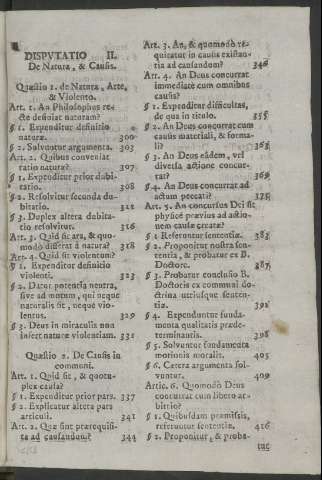 DISPVTATIO II.
De Natura, & Causis.
Quæstio 1. de Natura, Arte,
& Violento.
Art. 1. An Philosophus re-
cte definiat naturam?
§ 1. Expenditur definitio
naturæ. 300
§ 2. Solvuntur argumenta. 303
Art. 2. Quibus conveniat
ratio naturæ? 307
§ 1. Expenditur prior dubi-
tatio. 308
§ 2. Resolvitur secunda du-
bitatio. 312
§ 3. Duplex altera dubita-
tio resolvitur. 316
Art. 3. Quid sit ars, & quo-
modo differat à natura? 318
Art. 4. Quid sit violentum?
§ 1. Expenditur definitio
violenti. 323
§ 2. Datur potentia neutra,
sive ad motum, qui neque
naturalis sit, neque vio-
lentus. 329
§ 3. Deus in miraculis non
infert naturæ violentiam. 331
Quæstio 2. De Causis in
communi.
Art. 1. Quid sit, & quotu-
plex causa?
§ 1. Expenditur prior pars. 337
§ 2. Explicatur altera pars
articuli. 341
Art. 2. Quæ sint prærequisi-
ta ad causandum? 344
Art. 3. An, & quomodo re-
quiratur in causis existen-
tia ad causandum? 346
Art. 4. An Deus concurrat
immediatè cum omnibus
causis?
§ 1. Expenditur difficultas,
de qua in titulo. 355
§ 2. An Deus concurrat cum
causis materiali, & forma-
li? 363
§ 3. An Deus eâdem, vel
diversa actione concur-
rat? 369
§ 4. An Deus concurrat ad
actum peccati? 375
Art. 5. An concursus Dei sit
physicè prævius ad actio-
nem causæ creatæ?
§ 1. Referuntur sententiæ. 383
§ 2. Proponitur nostra sen-
tentia, & probatur ex B.
Doctore. 387
§ 3. Probatur conclusio B.
Doctoris ex communi do-
ctrina utriusque senten-
tiæ. 392
§ 4. Expenduntur funda-
menta qualitatis præde-
terminantis. 398
§ 5. Solvuntur fundamenta
motionis moralis. 405
§ 6. Cætera argumenta sol-
vuntur. 409
Artic. 6. Quomodò Deus
concurrat cum libero ar-
bitrio?
§ 1. Quibusdam præmissis,
referuntur sententiæ. 416
§ 2. Proponitur, & proba-
tur